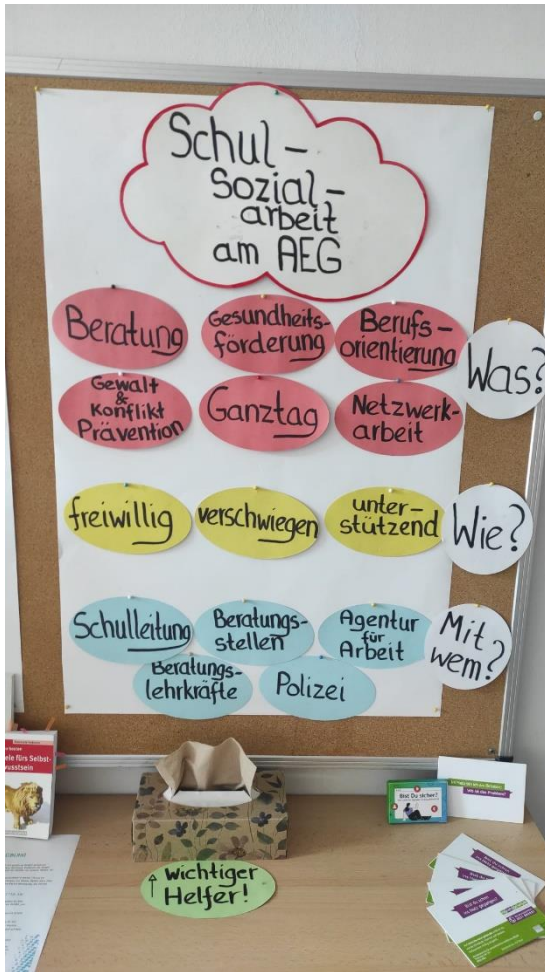 Schul-
Sozial-
arbeit
am AEG
Beratung
Gesundheits-
förderung
Berufs-
orientierung
Was?
Gewalt
&
Konflikt
Prävention
Ganztag
Netzwerk-
arbeit
freiwillig
verschwiegen
unter-
stützend
Wie?
Schulleitung
Beratungs-
stellen
Agentur
für
Arbeit
Mit
wem?
Beratungs-
lehrkräfte
Polizei
ele fürs Selbst-
usstsein
Bist Du sicher?
↑ Wichtiger
Helfer!